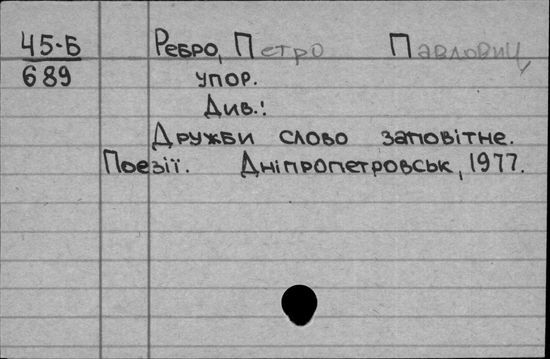 45-Б Ребро, Петро Павлович,
689 упор.
Див.:
Дружби слово заповітне.
Поезії. Дніпропетровськ, 1977.